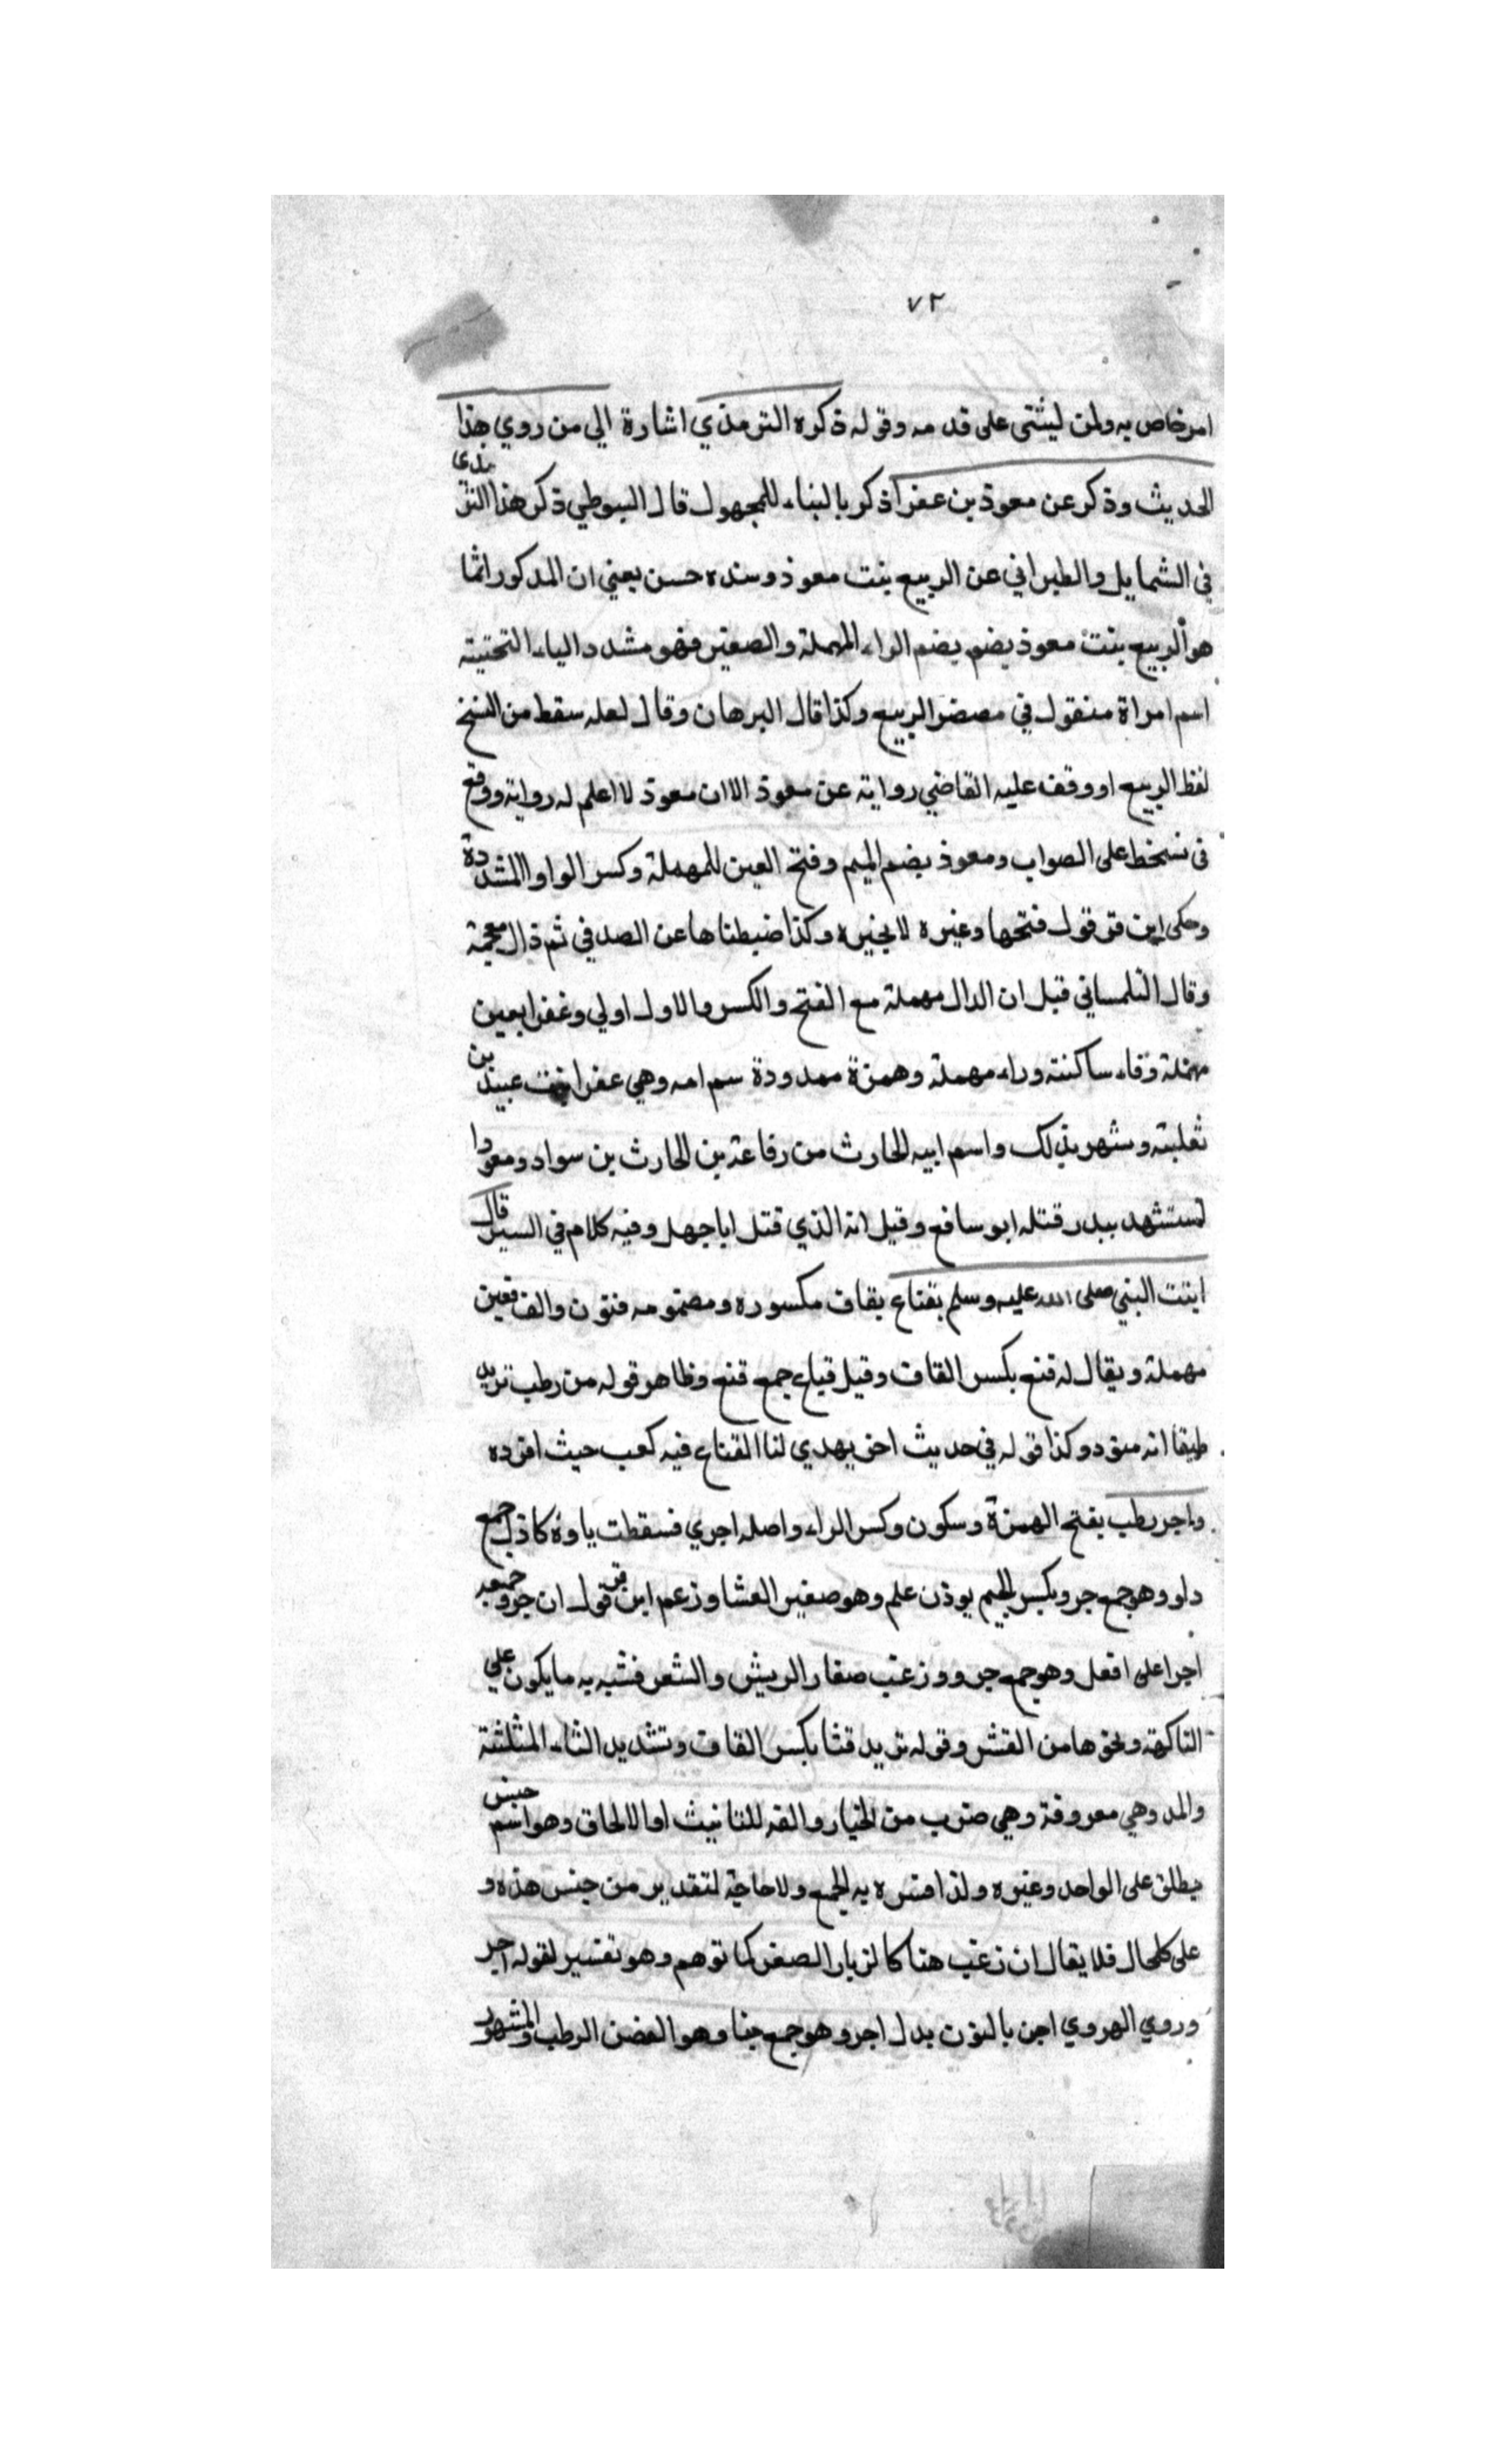 ٧٢
امر خاص به ولمن ليثتى على قد مه وقوله ذكره الترمذي اشارة الي من روي هذا
الحديث وذكر عن معوذ بن عفرا ذكر بالبناء للمجهول قال السيوطي ذكر هذا الترمذى
في الشمايل والطبراني عن الربيع بنت معوذ وسنده حسن يعني ان المدكور انما
هو الربيع بنت معوذ بضم بضم الراء المهملة والصغير فهو مشدد الياء التحتية
اسم امراة منقول في مصغر الربيع وكذا قال البرهان وقال لعله سقط من النسخ
لفظ الربيع او وقف عليه القاضي رواية عن معوذ الا ان معوذ لا اعلم له رواية ووقع
فى نسخط على الصواب ومعوذ بضم الميم وفتح العين للمهملة وكسر الواو المشددة
وحكى ابن قر قول فتحها وغيره لا يجيزه وكذا ضبطناها عن الصد في ثم ذال معجمة
وقال التلمساني قبل ان الدال مهملة مع الفتح والكسر والاول اولي وعفرا بعين
مهملة وفاء ساكنة وراء مهملة وهمزة ممدودة سم امه وهي عفرا بنت عبيد بن
ثعلبة وشهر بذلك واسم ابيه الحارث من رفاعة بن الحارث بن سواد ومعودا
استشهد ببدر قتله ابو سافع وقيل انه الذي قتل ابا جهل وفيه كلام في السير قال
اتيت النبي صلى الله عليه وسلم بقناع بقاف مكسوره ومضمومه فنون والف فعين
مهملة ويقال له قنع بكسر القاف وقيل قياع جمع قنع وظاهر قوله من رطب تريد
طبقا انه منفود وكذا قوله في حديث اخر يهدي لنا القناع فيه كعب حيث افرده
واجر رطب بفتح الهمزة وسكون وكسر الراء واصله اجري فسقطت ياوه كاذل جمع
دلو وهو جمع جرو بكسر الجيم يوذن علم وهو صغير العشا وزعم ابن قر قول ان جرو جمعه
اجرا على افعل وهو جمع جرو وزغب صغار الريش والشعر فشبه به ما يكون علي
التاكهة ونحوها من القشر وقوله تريد قثا بكسر القاف وتشديد الثاء المثلثة
والمد وهي معروفة وهي ضرب من الخيار والفه للتانيث او الالحاق وهو اسم جنس
يطلق على الواحد وغيره ولذا فسره به الجمع ولا حاجة لتقدير من جنس هذه و
على كلحال فلا يقال ان زغب هنا كالزبار الصغر كما توهم وهو تفسير لقوله اجر
وروي الهروي اجن بالنون بدل اجر وهو جمع جنا وهو الغضن الرطب والمشهور